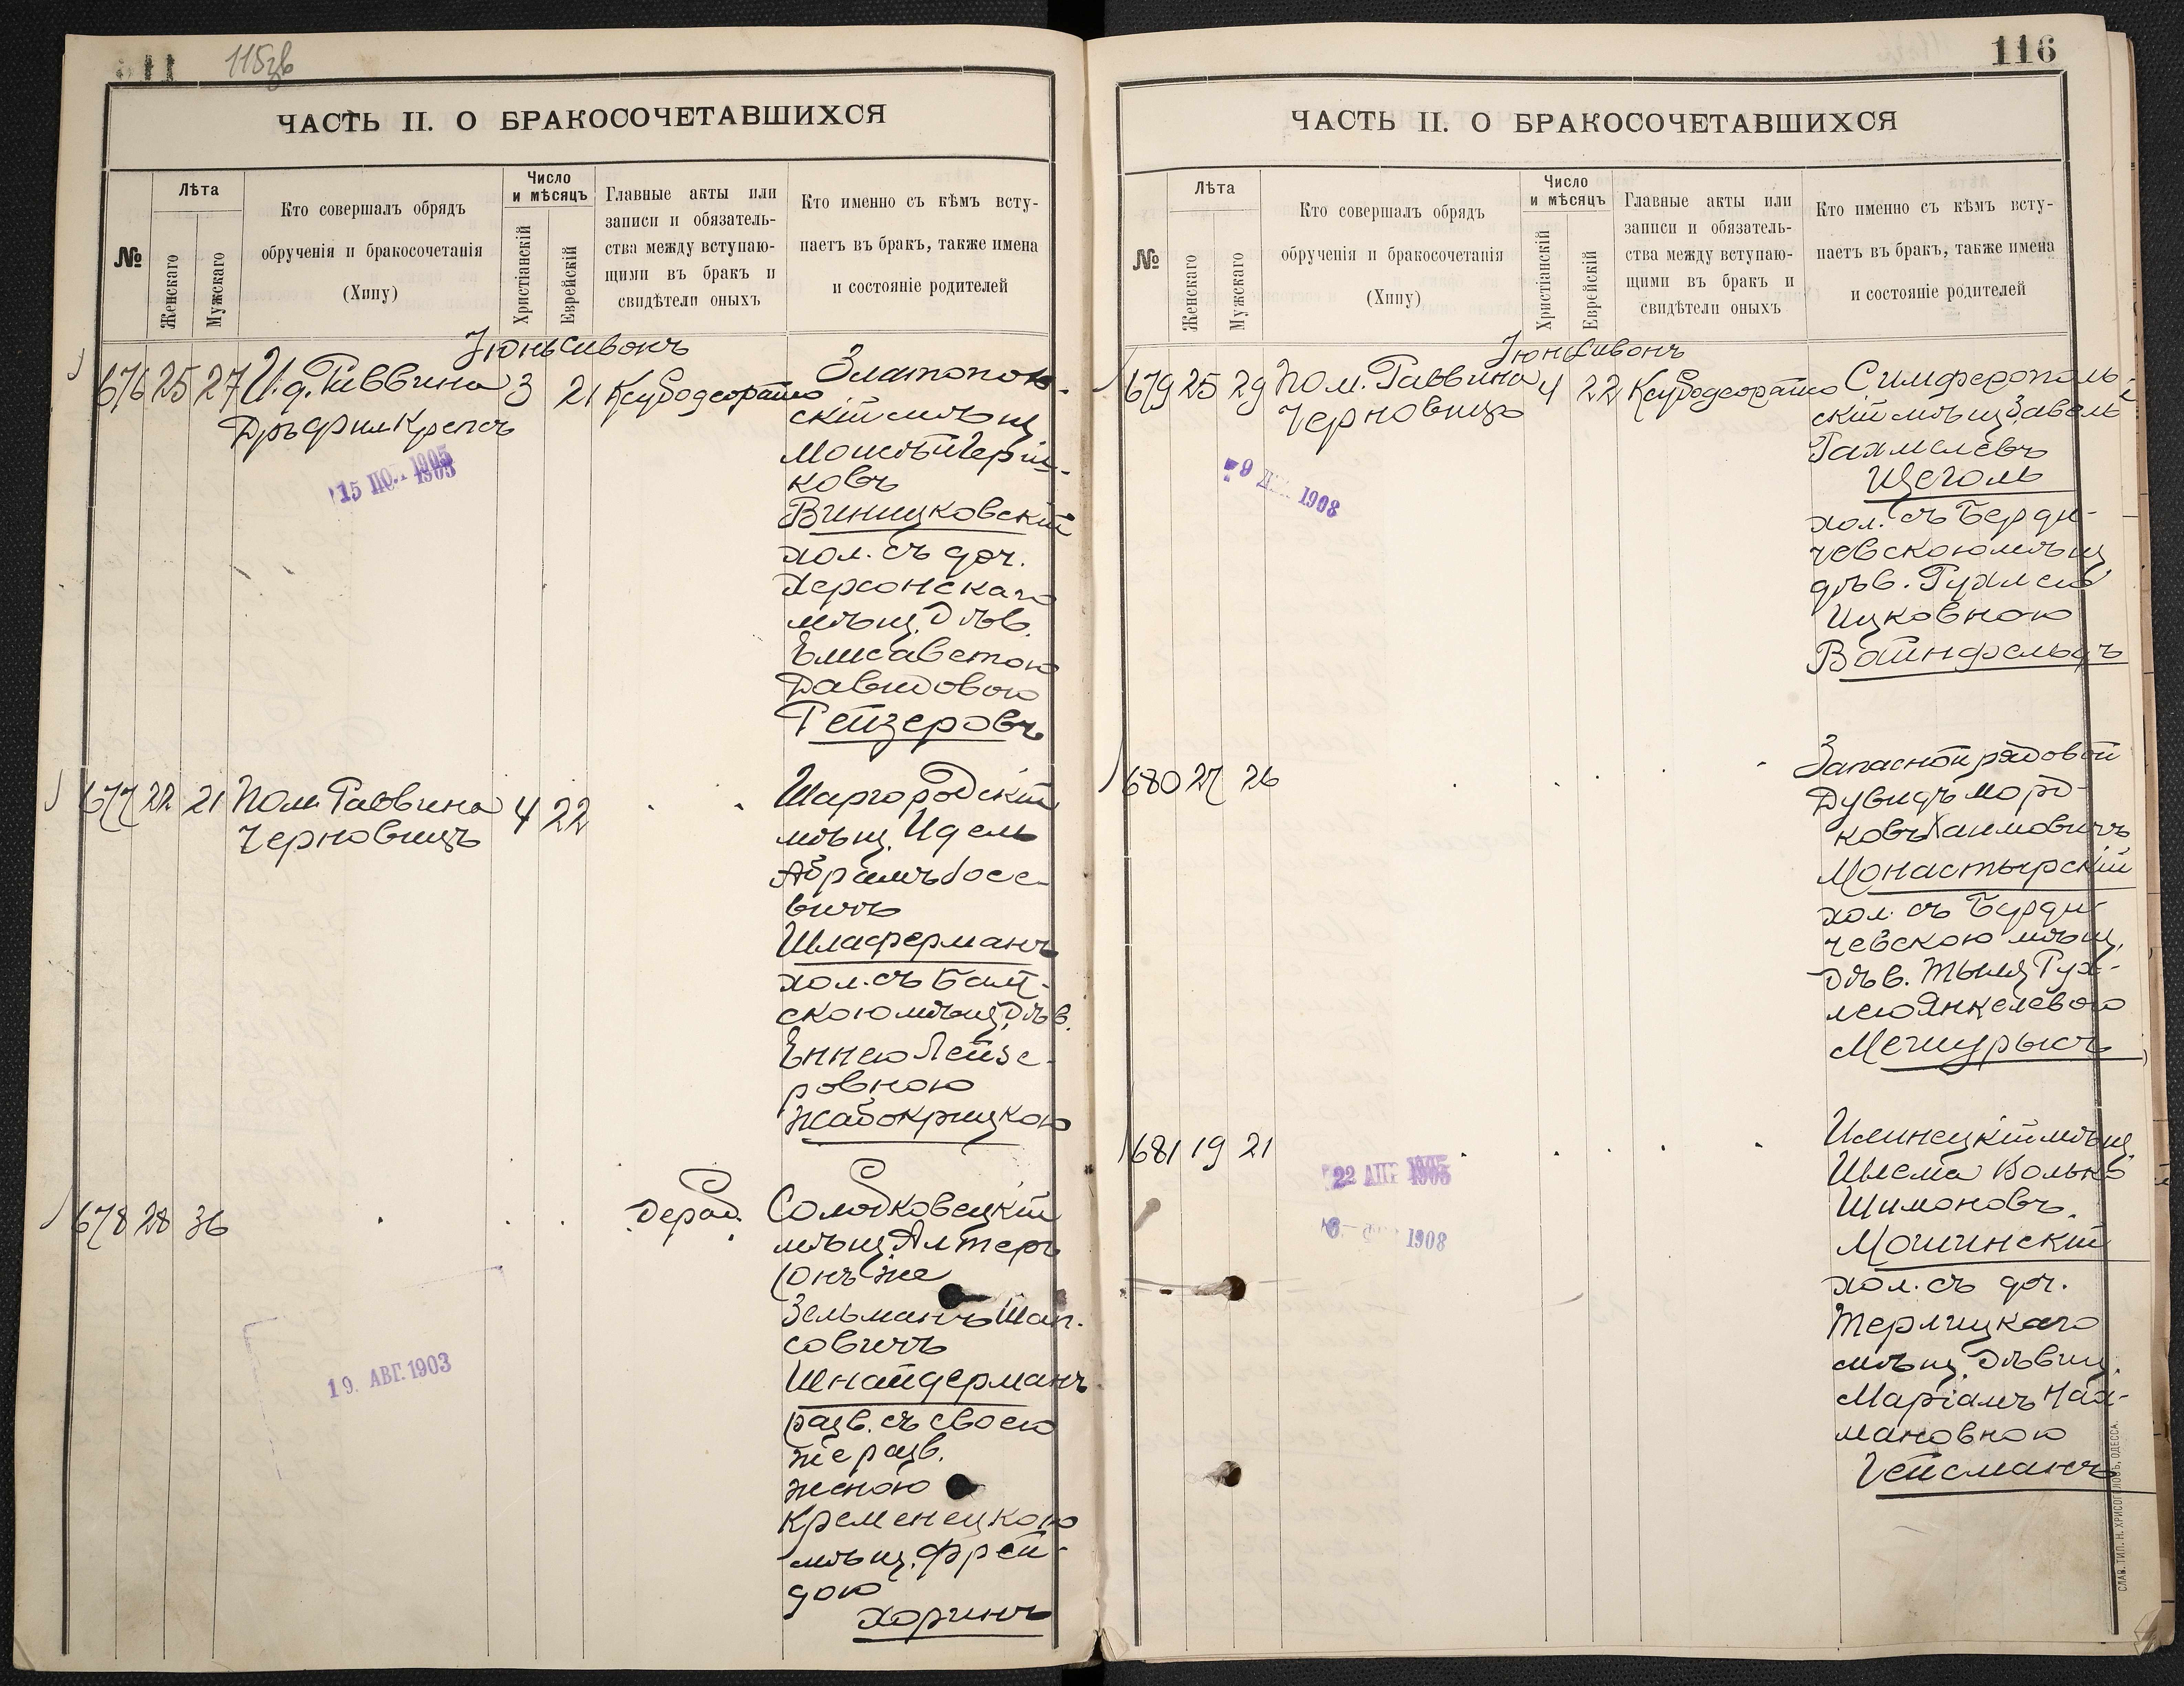 115зв
ЧАСТЬ II. О БРАКОСОЧЕТАВШИХСЯ
№
Лѣта
Женскаго
Мужскаго
Кто совершалъ обрядъ
обрученія и бракосочетанія
(Хипу)
Число
и мѣсяцъ
Христіанскій
Еврейскій
Главные акты или
записи и обязатель-
ства между вступаю-
щими въ бракъ и
свидѣтели оныхъ
Кто именно съ кѣмъ всту-
паетъ въ бракъ, также имена
и состояніе родителей
Іюнь Сивонъ
676 25 27 И. д. Раввина 3 21
Дръ Фил. Крепсъ
15 1905
1903
Златополь-
скій мѣщ.
Моисей Герш-
ковъ
Виницковскій
хол. съ доч.
Херсонскаго
мѣщ. Дѣв.
Елисаветою
Давидовою
Гейзеровъ
677 22 21 Пом. Раввина 4 22
Черновицъ
Шаргородскій
мѣщ. Идель
Абрамъ Іосе-
вичъ
Шлаферманъ
хол. съ Балт-
скою мѣщ. Дѣв.
Еннею Лейзе-
ровною
Жабокрицкою
678 28 36
Дерад.
19. АВГ. 1903
Солодковецкій
мѣщ. Алтеръ
(онъ же
Зельманъ Шап-
совичъ
Шнайдерманъ
разв. съ своею
же разв.
женою
Кременецкою
мѣщ. Фрей-
дою
Хоринъ
116
ЧАСТЬ II. О БРАКОСОЧЕТАВШИХСЯ
№
Лѣта
Женскаго
Мужскаго
Кто совершалъ обрядъ
обрученія и бракосочетанія
(Хипу)
Число
и мѣсяцъ
Христіанскій
Еврейскій
Главные акты или
записи и обязатель-
ства между вступаю-
щими въ бракъ и
свидѣтели оныхъ
Кто именно съ кѣмъ всту-
паетъ въ бракъ, также имена
и состояніе родителей
Іюнь Сивонъ
679 25 29 Пом. Раввина 4 22
Черновицъ
1908
Симферополь-
скій мѣщ. Завель
Рахмелевъ
Щеголь
хол. съ Берди-
чевскою мѣщ.
дѣв. Рухлею
Ицковною
Вайнфельдъ
680 27 26
Запасной рядовой
Дувидъ Морд-
ковъ Хаимовичъ
Монастырскій
хол. съ Берди-
чевскою мѣщ.
Дѣв. Тылей Рух-
лею Янкелевою
Межурысъ
681 19 21
22 АПР 1905
1908
Илинецкій мѣщ.
Шлема Волько
Шимоновъ
Мошинскій
хол. съ доч.
Терлицкаго
мѣщ. Дѣвиц.
Маріамъ Нах-
мановною
Гейсманъ
СЛАВ. ТИП. Н. ХРИСОГЕЛОСЪ, ОДЕССА.